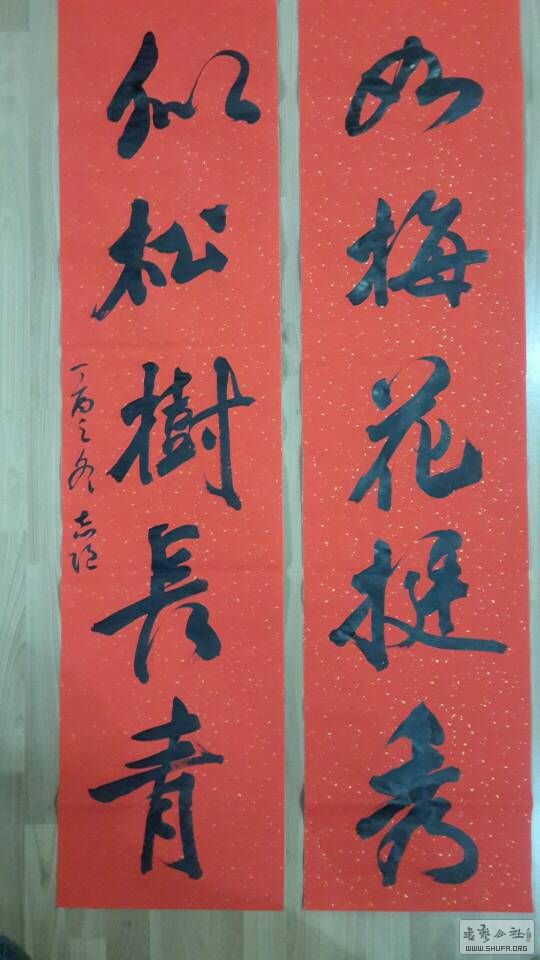 如梅花挺秀
似松樹長青
丁酉之冬 志
書藝公社
WWW.SHUFA.ORG